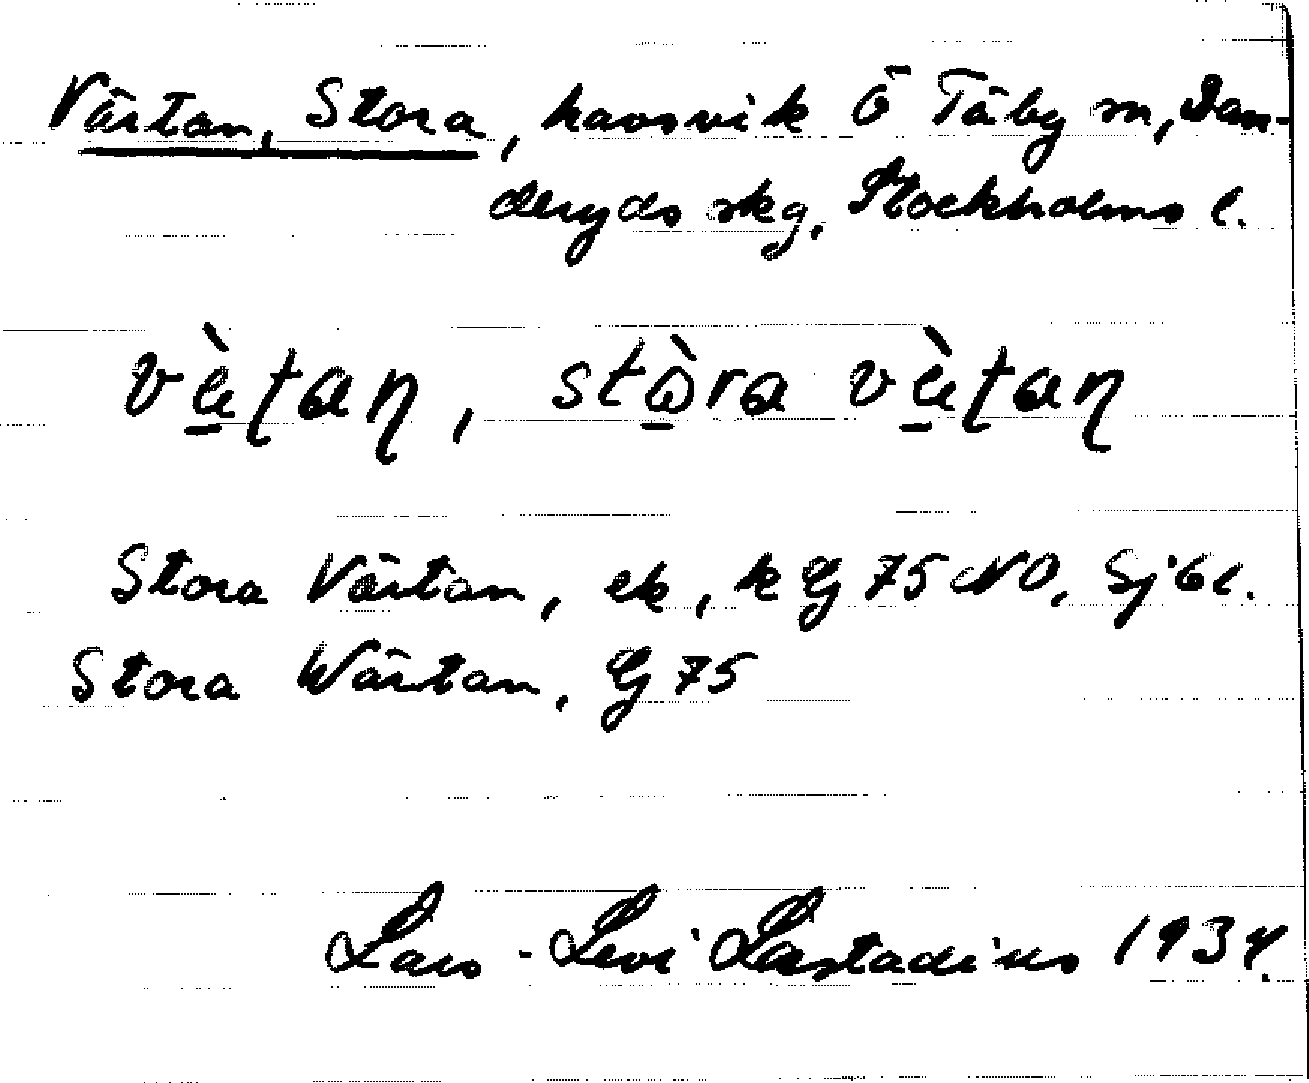 Värtan, Stora, havsvik Ö Täby sn, Dan-
deryds skg, Stockholms l.
vä̀ṭaṇ, stòra vä̀ṭaṇ
Stora Värtan, ek, k G 75 NO, Sjöl.
Stora Wärtan, G 75
Lars-Levi Læstadius 1934.